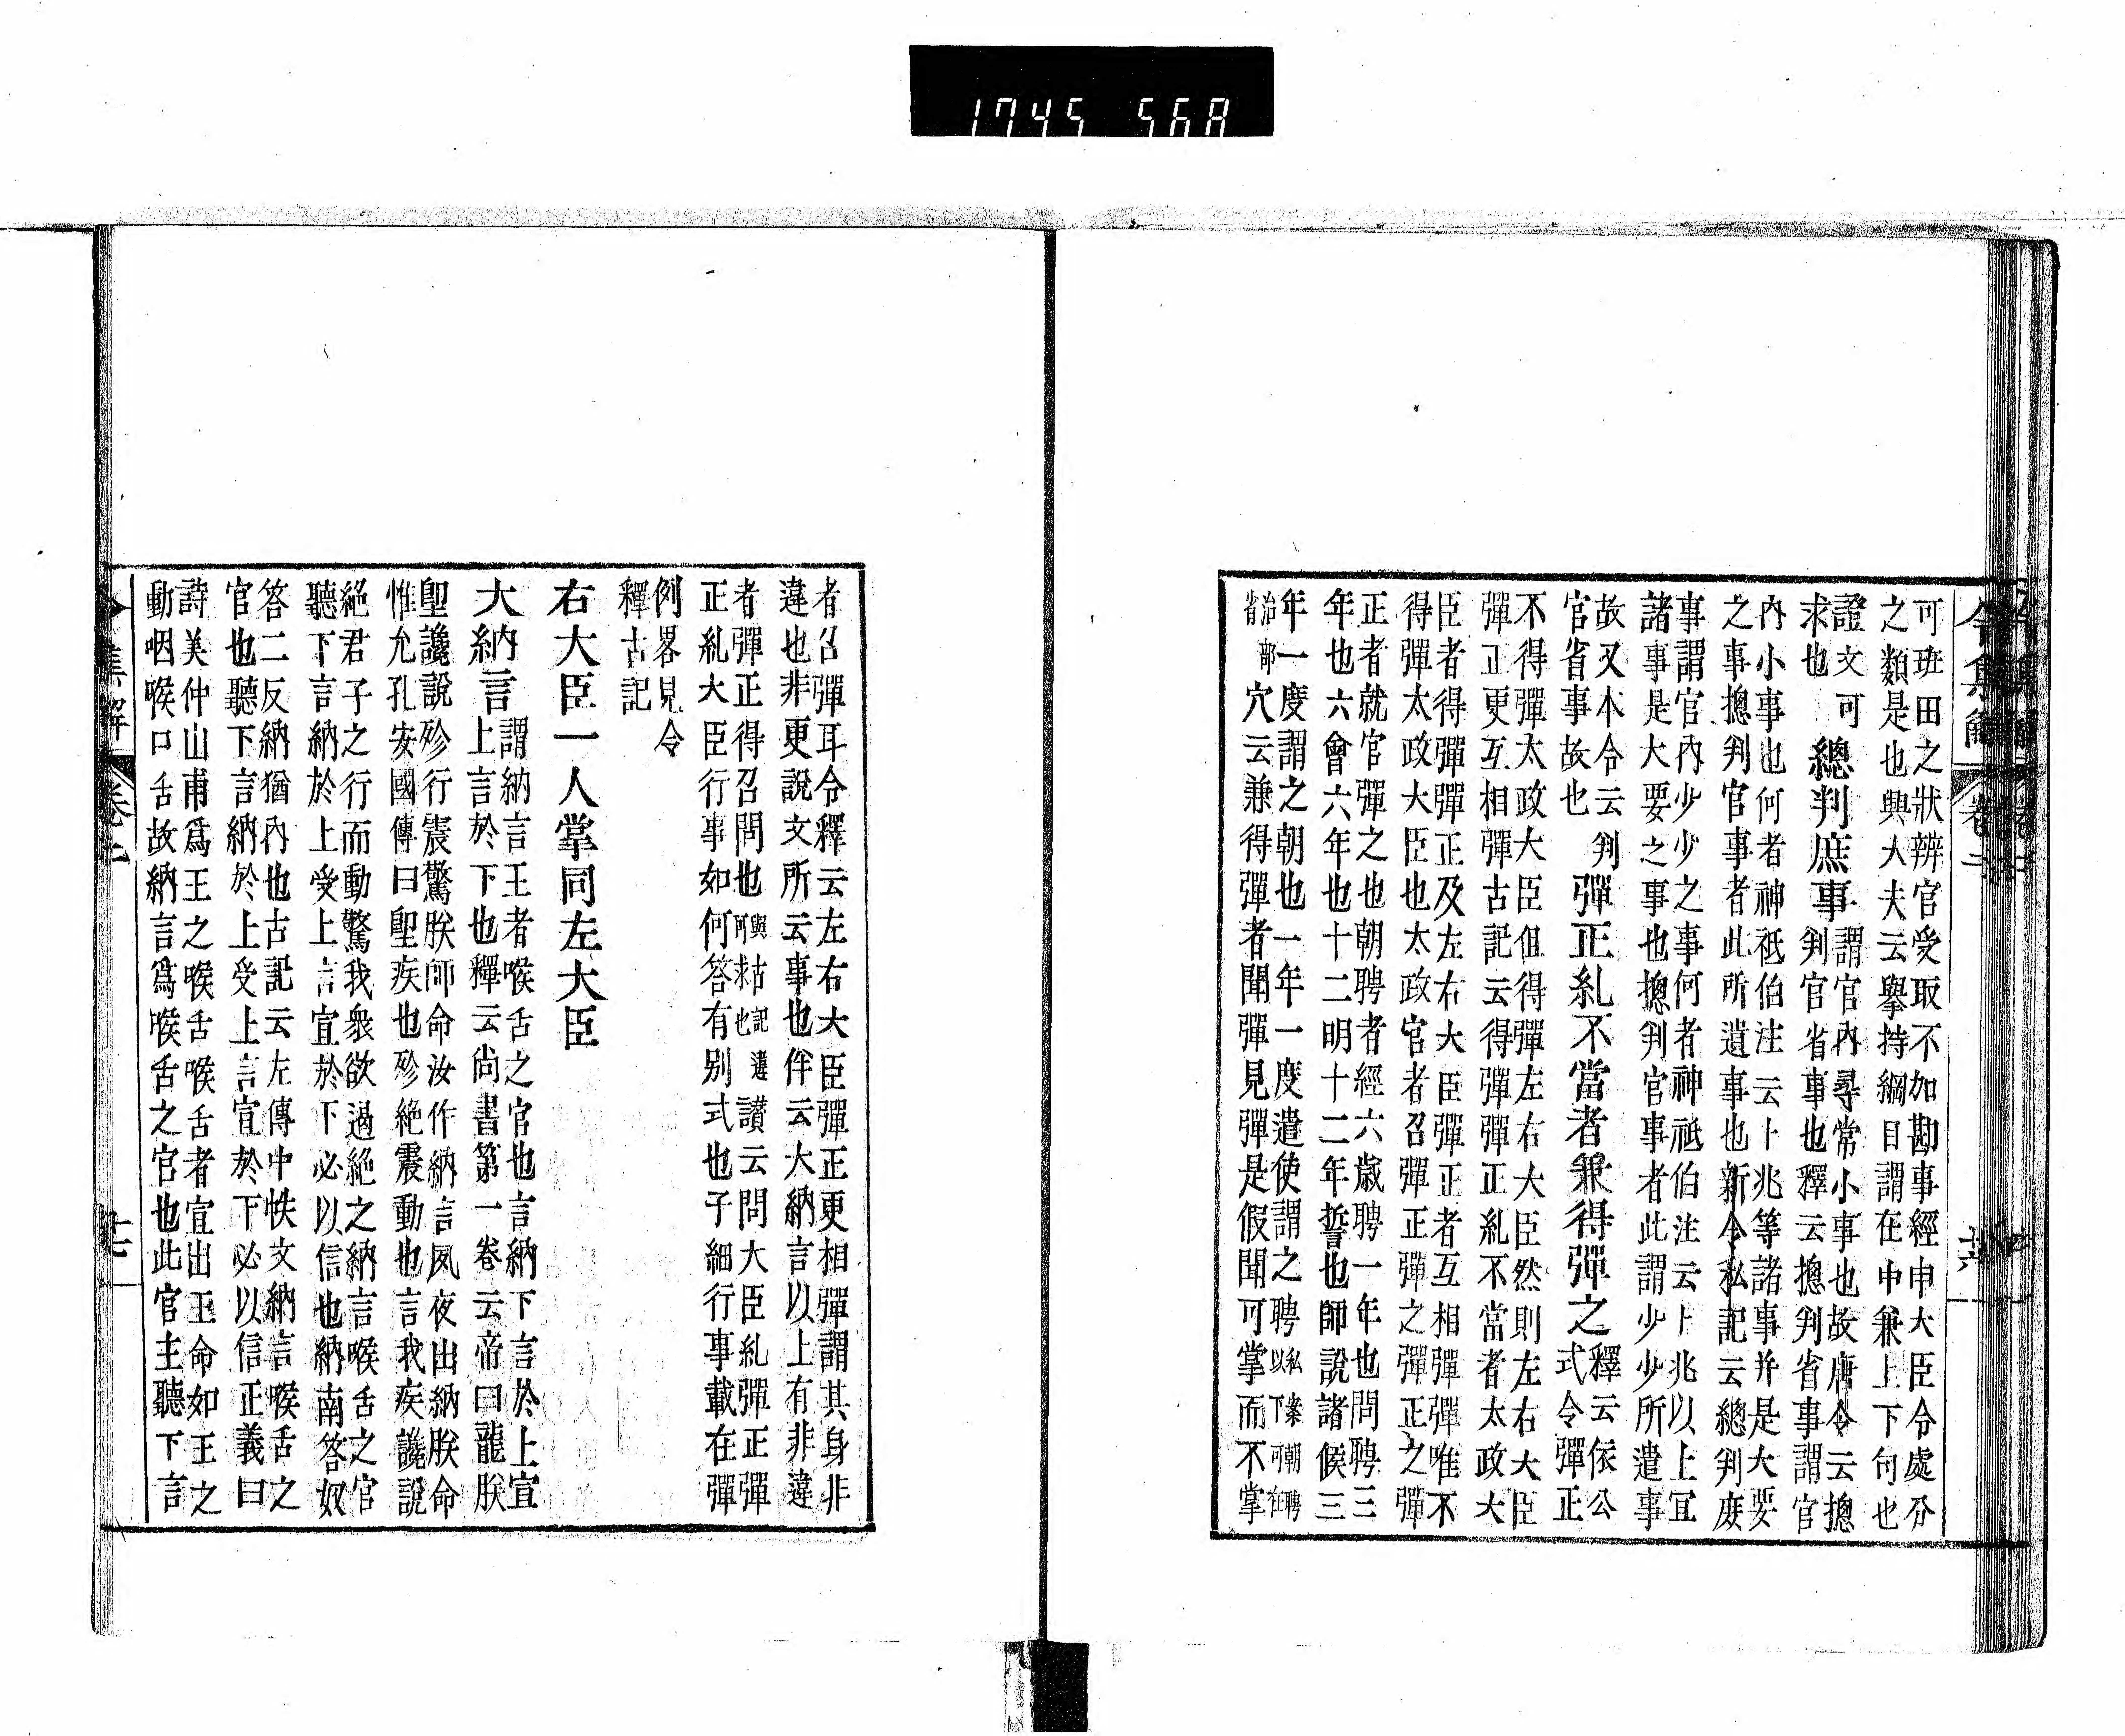 1745 568
令集解 卷二 十六
可班田之狀辨官受取不加勘事經申大臣令處分
之類是也與大夫云擧持綱目謂在中兼上下句也
證文可
求也
總判庶事
謂官內尋常小事也故唐令云摠
判官省事也釋云摠判省事謂官
內小事也何者神祇伯注云卜兆等諸事并是大要
之事摠判官事者此所遺事也新令私記云總判庶
事謂官內少少之事何者神祇伯注云卜兆以上宜
諸事是大要之事也摠判官事者此謂少少所遣事
故又本令云判
官省事故也
彈正糺不當者兼得彈之
釋云依公
式令彈正
不得彈太政大臣但得彈左右大臣然則左右大臣
彈正更互相彈古記云得彈彈正糺不當者太政大
臣者得彈彈正及左右大臣彈正者互相彈彈唯不
得彈太政大臣也太政官者召彈正彈之彈正之彈
正者就官彈之也朝聘者經六歲聘一年也問聘三
年也六會六年也十二明十二年誓也師說諸候三
年一度謂之朝也一年一度遣使謂之聘私案朝聘
以下可在
治部
省
穴云兼得彈者聞彈見彈是假聞可掌而不掌
者召彈耳令釋云左右大臣彈正更相彈謂其身非
違也非更說文所云事也伴云大納言以上有非違
者彈正得召問也與古記違
可求也
讃云問大臣糺彈正彈
正糺大臣行事如何答有別式也子細行事載在彈
例畧見令
釋古記
右大臣一人掌同左大臣
大納言
謂納言王者喉舌之官也言納下言於上宣
上言於下也釋云尚書第一卷云帝曰龍朕
聖讒說殄行震驚朕師命汝作納言夙夜出納朕命
惟允孔安國傳曰聖疾也殄絕震動也言我疾讒說
絕君子之行而動驚我衆欲遏絕之納言喉舌之官
聽下言納於上受上言宣於下必以信也納南答奴
答二反納猶內也古記云左傳中帙文納言喉舌之
官也聽下言納於上受上言宣於下必以信正義曰
詩美仲山甫爲王之喉舌喉舌者宣出王命如王之
動咽喉口舌故納言爲喉舌之官也此官主聽下言
令集解 卷二 十七